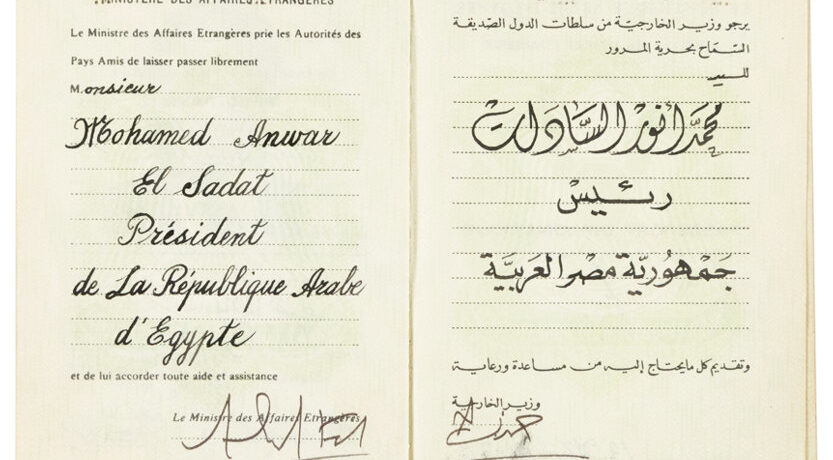 MINISTERE DES AFFAIRES ETRANGERES
Le Ministre des Affaires Etrangères prie les Autorités des
Pays Amis de laisser passer librement
Monsieur
Mohamed Anwar
El Sadat
Président
de La République Arabe
d'Egypte
et de lui accorder toute aide et assistance
Le Ministre des Affaires Etrangères
يرجو وزير الخارجية من سلطات الدول الصديقة
السماح بحرية المرور
للسيد
محمد أنور السادات
رئيس
جمهورية مصر العربية
وتقديم كل ما يحتاج إليه من مساعدة ورعاية
وزير الخارجية